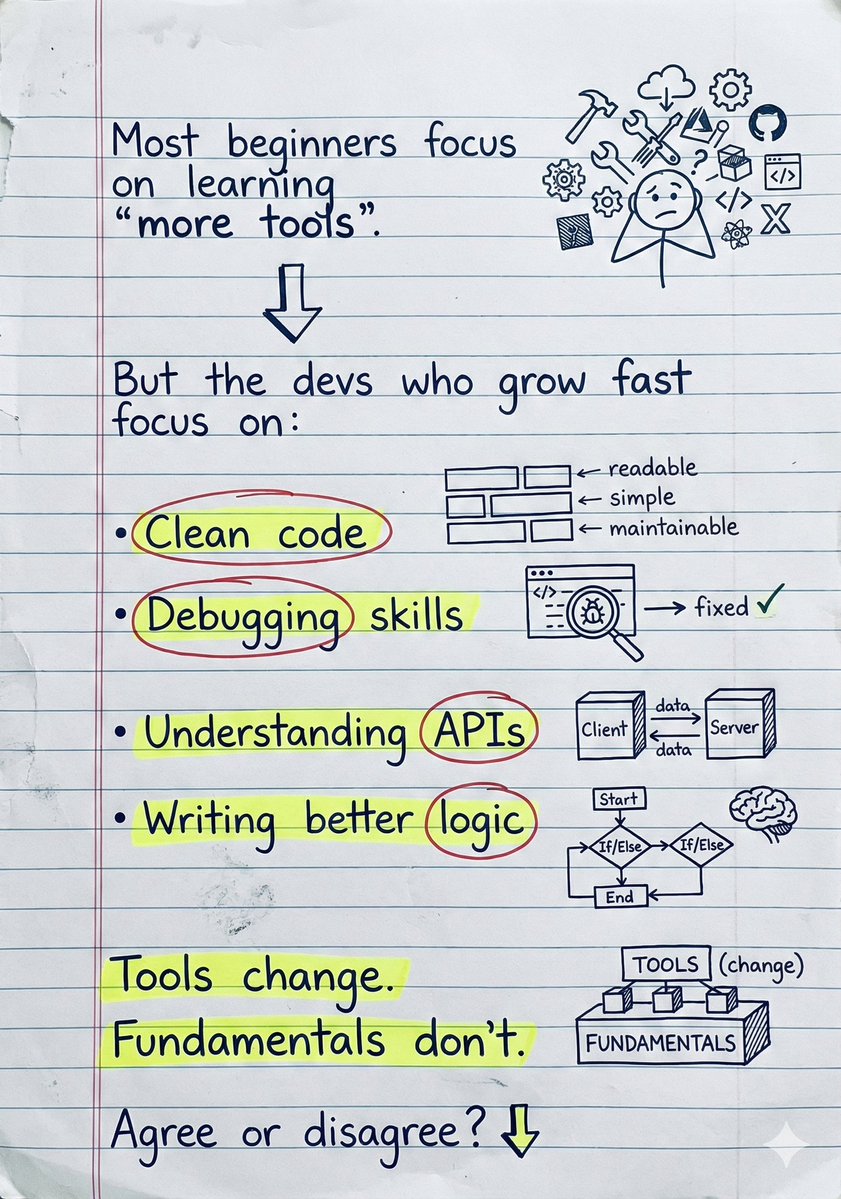 Most beginners focus
on learning
“more tools”.
?
</>
</>
X
But the devs who grow fast
focus on:
readable
simple
maintainable
• Clean code
</>
• Debugging skills
fixed ✓
• Understanding APIs
Client
data
data
Server
• Writing better logic
Start
If/Else
If/Else
End
Tools change.
Fundamentals don’t.
TOOLS (change)
FUNDAMENTALS
Agree or disagree?